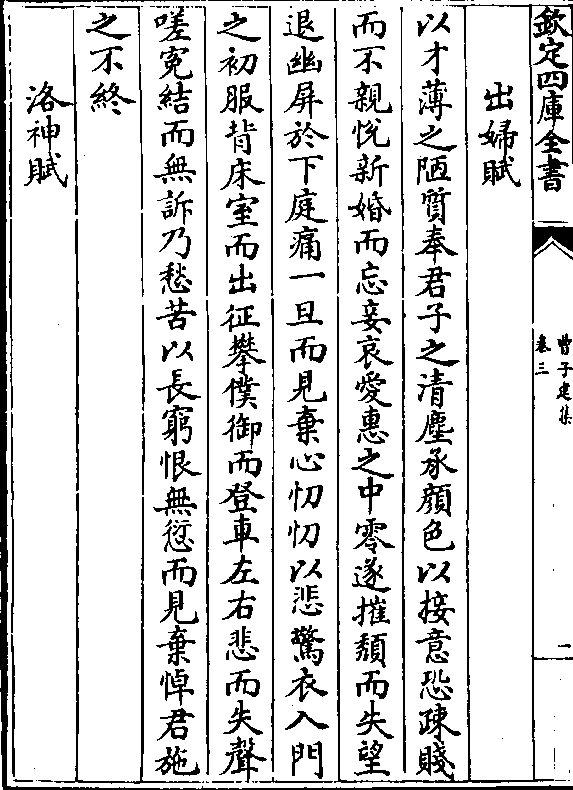 欽定四庫全書
曹子建集
卷三
二
出婦賦
以才薄之陋質奉君子之清塵承顔色以接意恐疎賤
而不親悅新婚而忘妾哀愛惠之中零遂摧頽而失望
退幽屏於下庭痛一旦而見棄心忉忉以悲驚衣入門
之初服背床室而出征攀僕御而登車左右悲而失聲
嗟寃結而無訴乃愁苦以長窮恨無愆而見棄悼君施
之不終
洛神賦